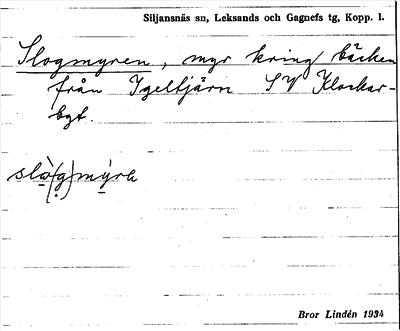 Siljansnäs sn, Leksands och Gagnefs tg, Kopp. l.
Slogmyren, myr kring bäcken
från Igeltjärn SV Klockar-
bgt.
Bror Lindén 1934